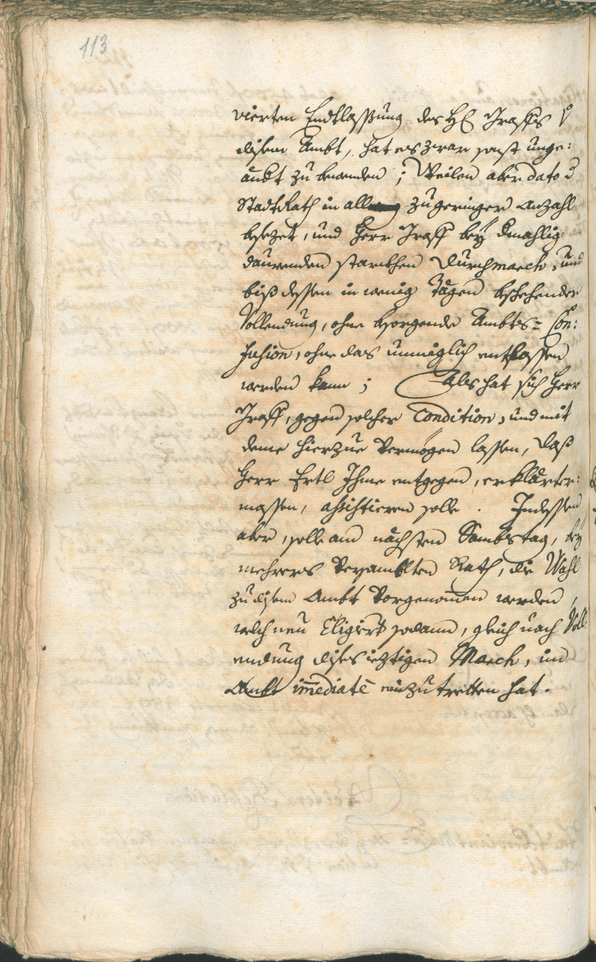 113
vierten Endtlassung des H: Graffs v
disem Ambt, hat es zwar sonst unge:
ändt zu bewenden; Weilen aber dato d
StadtRath in all zu geringer Anzahl
besezet, und Herr Graff bey dermahlig
daurenden starckhen Durchmarch, und
biß dessen in wenig Tägen beschehender
Vollendung, ohne besorgende Ambts= Con:
fusion, ohne das unmöglich entlassen
werden kann; Als hat sich Herr
Graff, gegen solcher Condition, und mit
deme hierzue vermögen lassen, daß
Herr Ertl Ihme entgegen, erklärter:
massen, assistieren solle. Indessen
aber, solle am nächsten Sambstag, bey
mehrers versambleten Rath, die Wahl
zu disem Ambt vorgenommen werden,
welch neu Eligirter sodann, gleich nach Voll
endung dises ieztigen March, im
Ambt immediatè einzutretten hat.